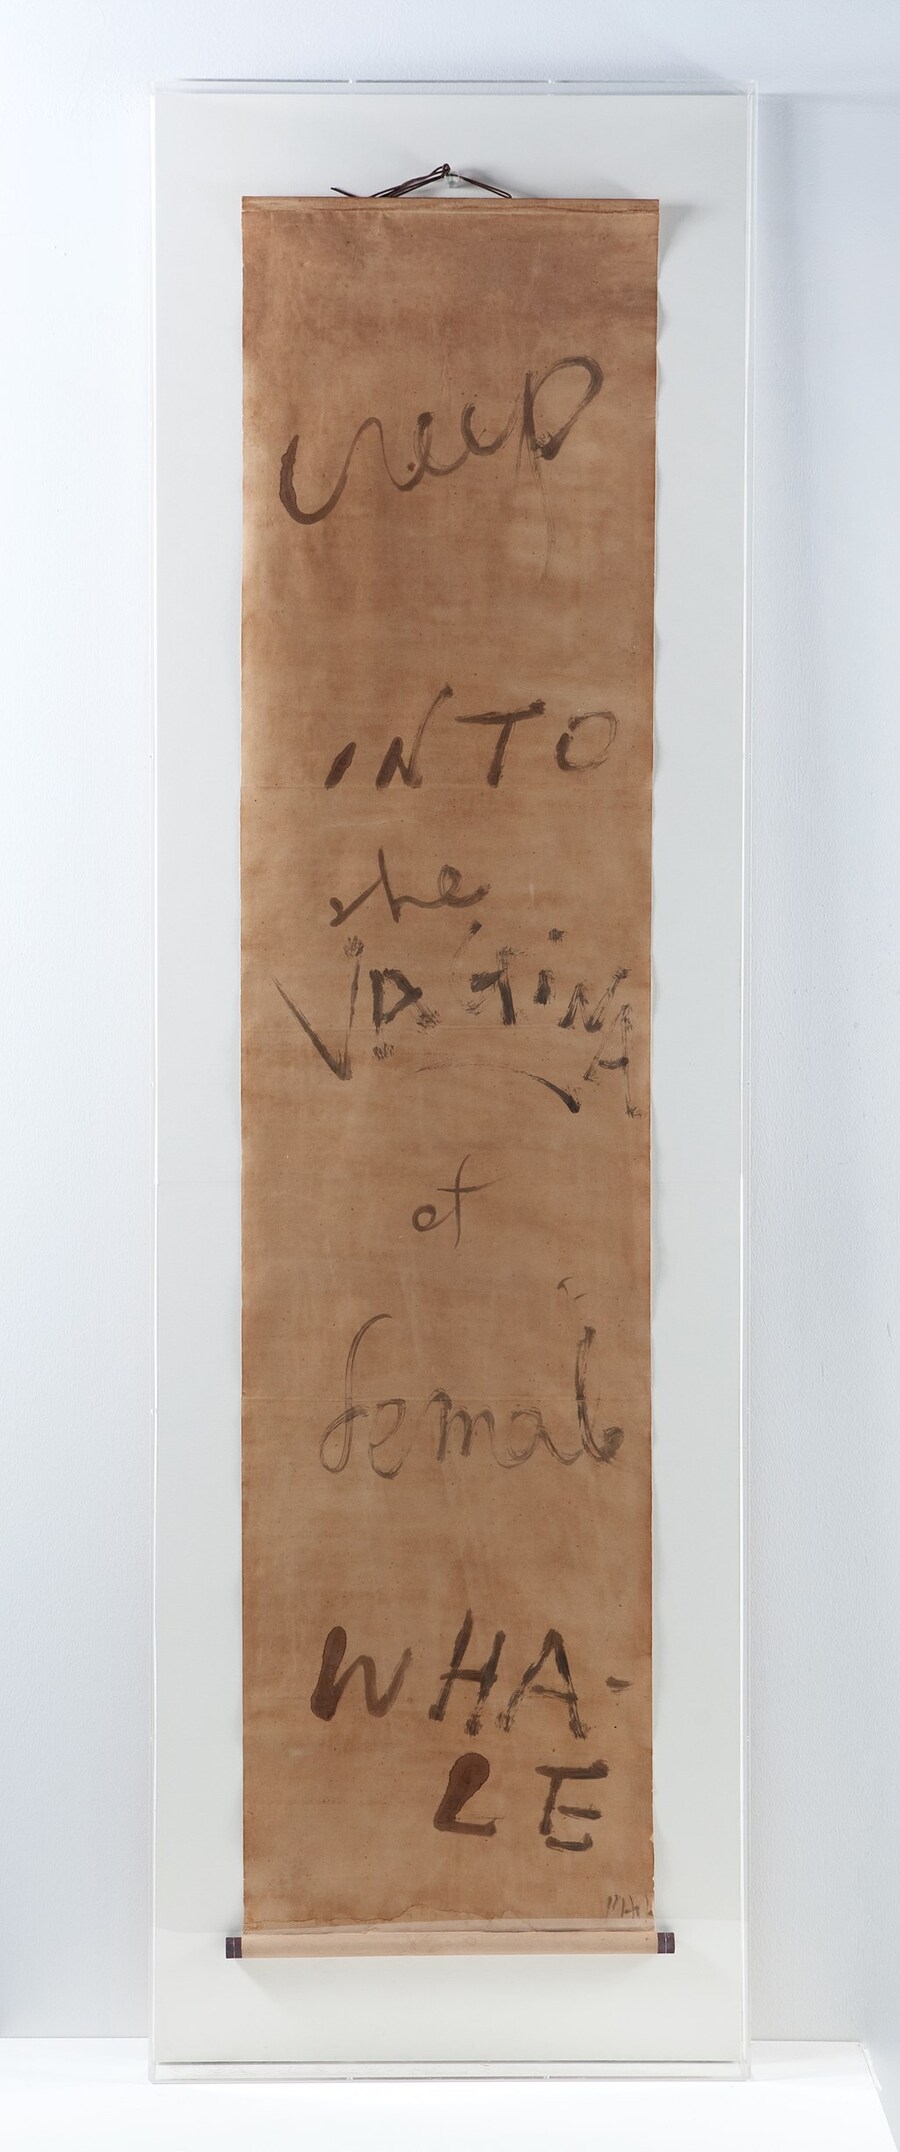 creep
INTO
the
VAGINA
of
female
WHA-
LE